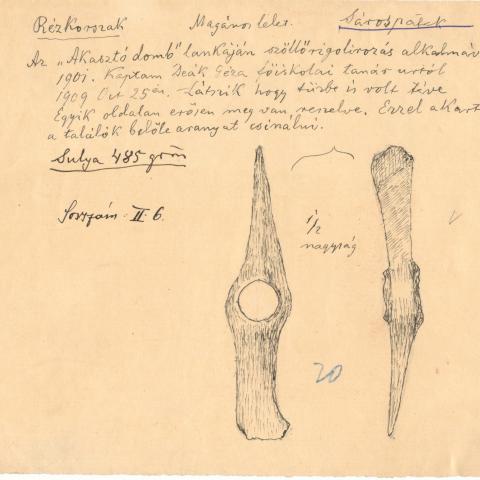 Rézkorszak Magános lelet. Sárospatak
Az „Akasztó domb" lankáján szöllőrigolirozás alkalmáv
1901. Kaptam Deák Géza főiskolai tanár urtól
1909 Oct 25én. Látszik hogy tűzbe is volt téve
Egyik oldalan erősen meg van reszelve. Ezzel akart
a találók belőle aranyat csinálni.
Sulya 485 gröm
Sorszám II. 6.
1/2
nagyság
20